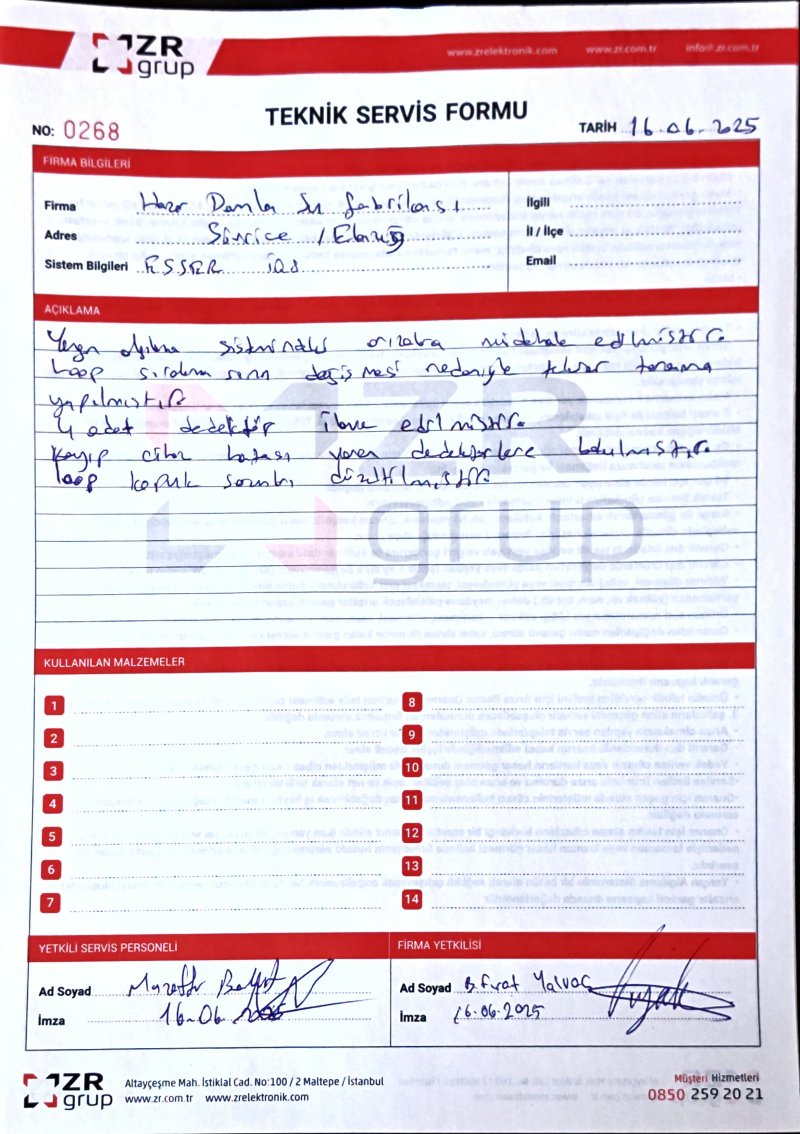 ZR grup
www.zrelektronik.com www.zr.com.tr info@zr.com.tr
TEKNİK SERVİS FORMU
NO: 0268
TARİH 16.06.2025
FİRMA BİLGİLERİ
Firma Hazar Damla Su fabrikası
Adres Sivrice / Elazığ
Sistem Bilgileri ESSER
İlgili
İl / İlçe
Email
AÇIKLAMA
Yangın algılama sistemindeki arızalara müdehale edilmiştir.
Loop sıralamasının değişmesi nedeniyle tekrar tarama
yapılmıştır
4 adet dedektör ilave edilmiştir.
Kayıp cihaz hatası veren dedektörlere bakılmıştır.
loop kopuk sorunu düzeltilmiştir
ZR grup
KULLANILAN MALZEMELER
1
2
3
4
5
6
7
8
9
10
11
12
13
14
YETKİLİ SERVİS PERSONELİ
Ad Soyad
İmza 16.06.
FİRMA YETKİLİSİ
Ad Soyad B. Fırat Yalvaç
İmza 16.06.2025
ZR grup
Altayçeşme Mah. İstiklal Cad. No:100 / 2 Maltepe / İstanbul
www.zr.com.tr www.zrelektronik.com
Müşteri Hizmetleri
0850 259 20 21